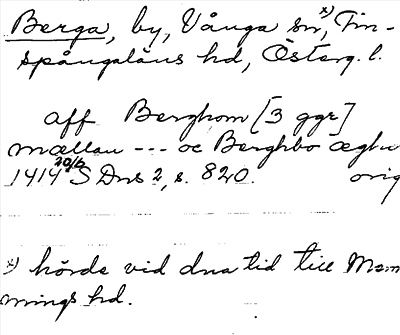 Berga, by, Vånga sn x), Fin-
spångaläns hd, Österg. l.
aff Berghom [3 ggr]
mællan --- oc Berghbo æghu
1414 20/6 S Dns 2, s. 820. orig
x) hörde vid dna tid till Mem
mings hd.